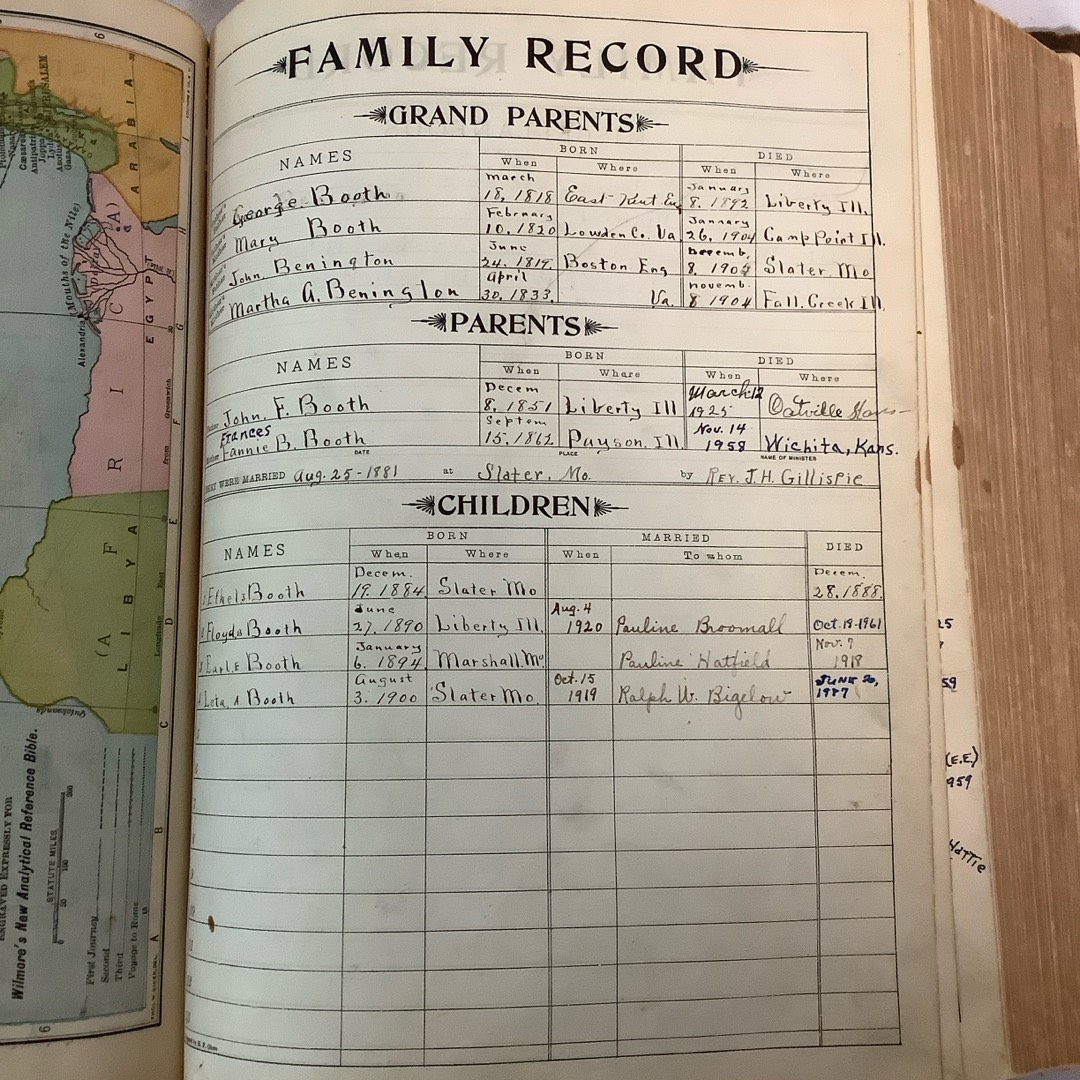 FAMILY RECORD
GRAND PARENTS
NAMES BORN DIED
When Where When Where
George Booth March 18, 1818 East Kent Eng January 8. 1892 Liberty Ill.
Mary Booth February 10, 1820 Lowden Co. Va January 26, 1904 Camp Point Ill.
John Benington June 24. 1819. Boston Eng Decemb. 8, 1904 Slater Mo
Martha A. Benington April 30, 1833. Va. Novemb. 8 1904 Fall Creek Ill.
PARENTS
NAMES BORN DIED
When Where When Where
John. F. Booth Decem 8, 1851 Liberty Ill March 12 1925 Oatville Kans
Frances
Fannie B. Booth Septem 15, 1862 Payson, Ill. Nov. 14 1958 Wichita, Kans.
DATE PLACE NAME OF MINISTER
WERE MARRIED Aug. 25-1881 at Slater, Mo. by REV. J. H. Gillispie
CHILDREN
NAMES BORN MARRIED DIED
When Where When To whom
Ethel Booth Decem. 19. 1884 Slater Mo Decem. 28. 1888.
Floyd Booth June 27, 1890 Liberty Ill. Aug. 4 1920 Pauline Broomall Oct. 19-1961
Earl E Booth January 6. 1894 Marshall. Mo Pauline Hatfield Nov. 7 1918
Leta A Booth August 3. 1900 Slater Mo. Oct. 15 1919 Ralph W. Bigelow JUNE 20,
EGYPT
ARABIA
AFRICA
(A)
LIBYA
Mouths of the Nile
Alexandria
JERUSALEM
Greenwich
from
East
Longitude
ENGRAVED EXPRESSLY FOR
Wilmore's New Analytical Reference Bible.
STATUTE MILES
50 100 200
First Journey
Second
Third
Voyage to Rome
59
(E.E.)
959
HATTIE